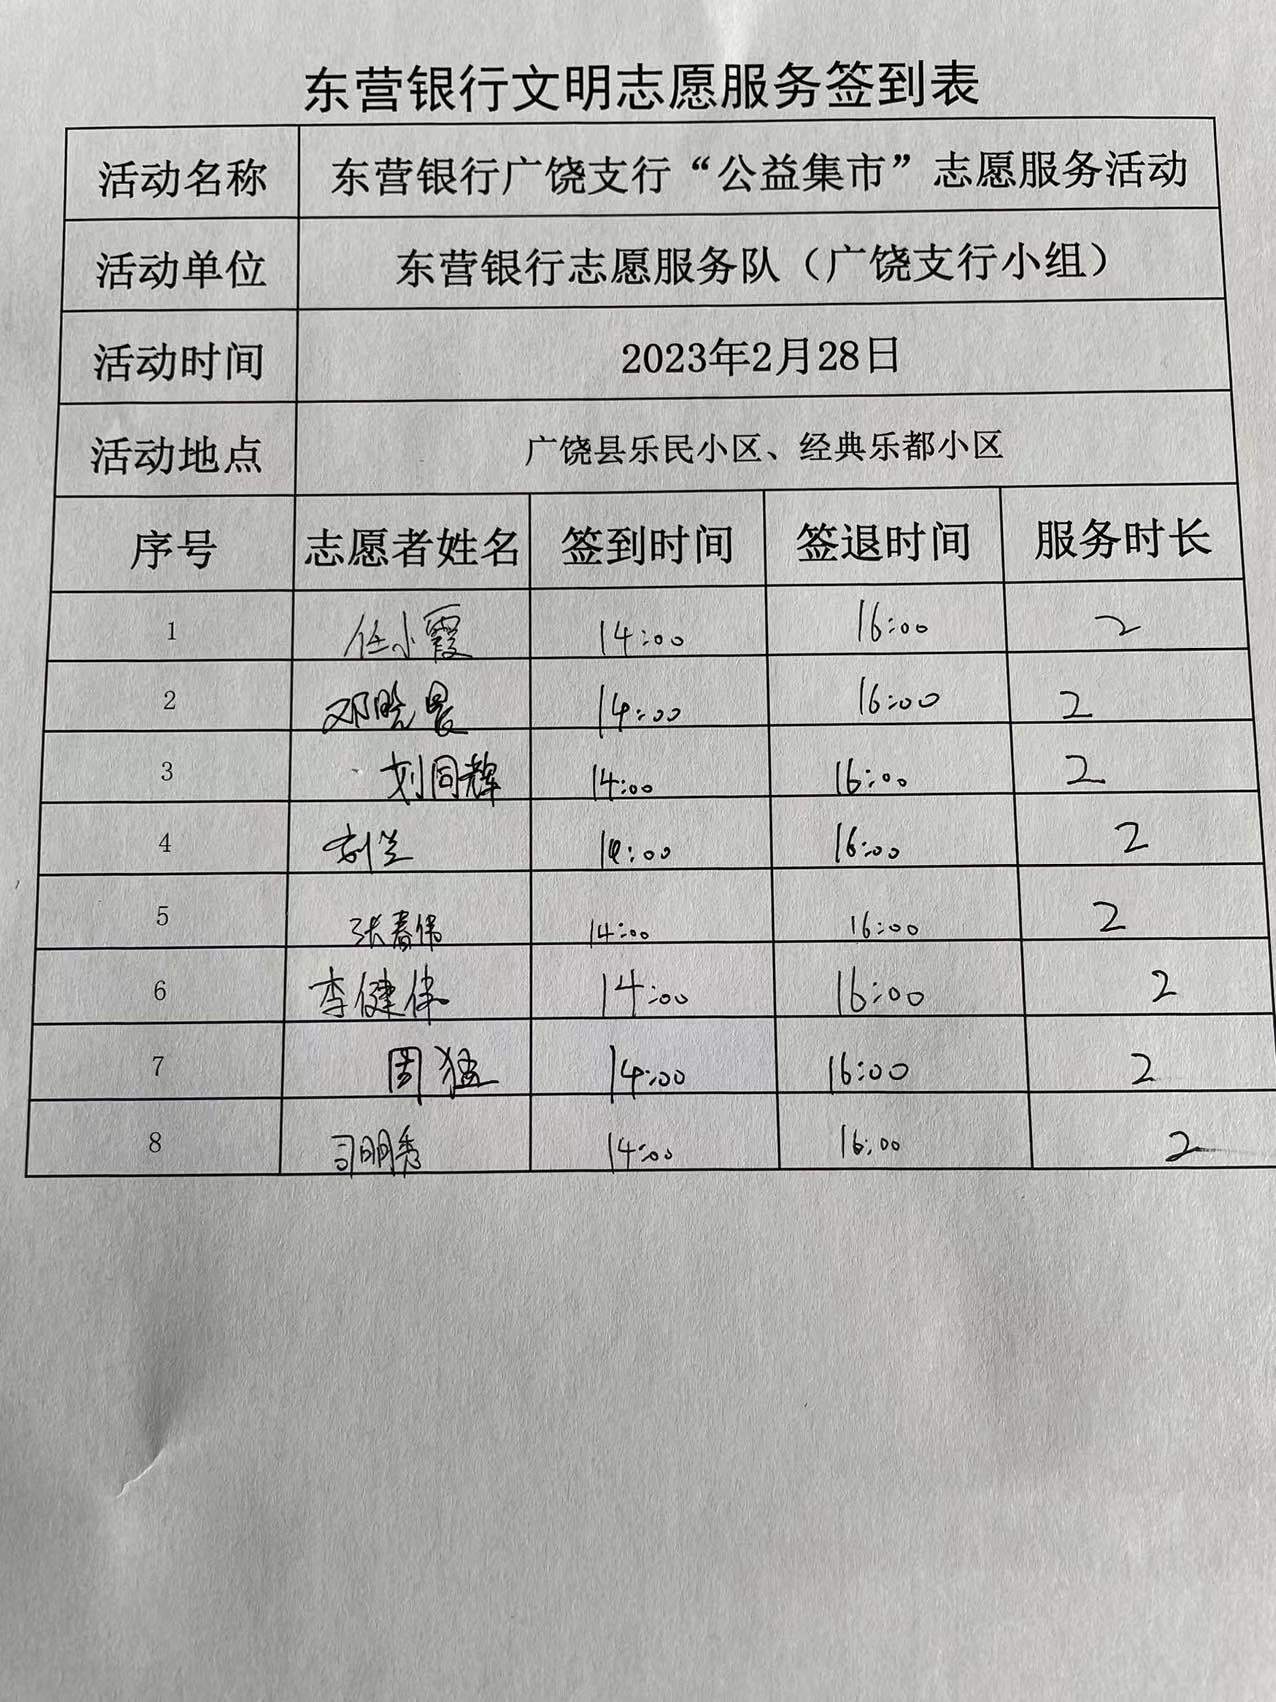 东营银行文明志愿服务签到表
活动名称 东营银行广饶支行“公益集市”志愿服务活动
活动单位 东营银行志愿服务队（广饶支行小组）
活动时间 2023年2月28日
活动地点 广饶县乐民小区、经典乐都小区
序号 志愿者姓名 签到时间 签退时间 服务时长
1 任小霞 14:00 16:00 2
2 邓晓晨 14:00 16:00 2
3 刘同辉 14:00 16:00 2
4 刘兰 14:00 16:00 2
5 张春伟 14:00 16:00 2
6 李健伟 14:00 16:00 2
7 周猛 14:00 16:00 2
8 司明秀 14:00 16:00 2